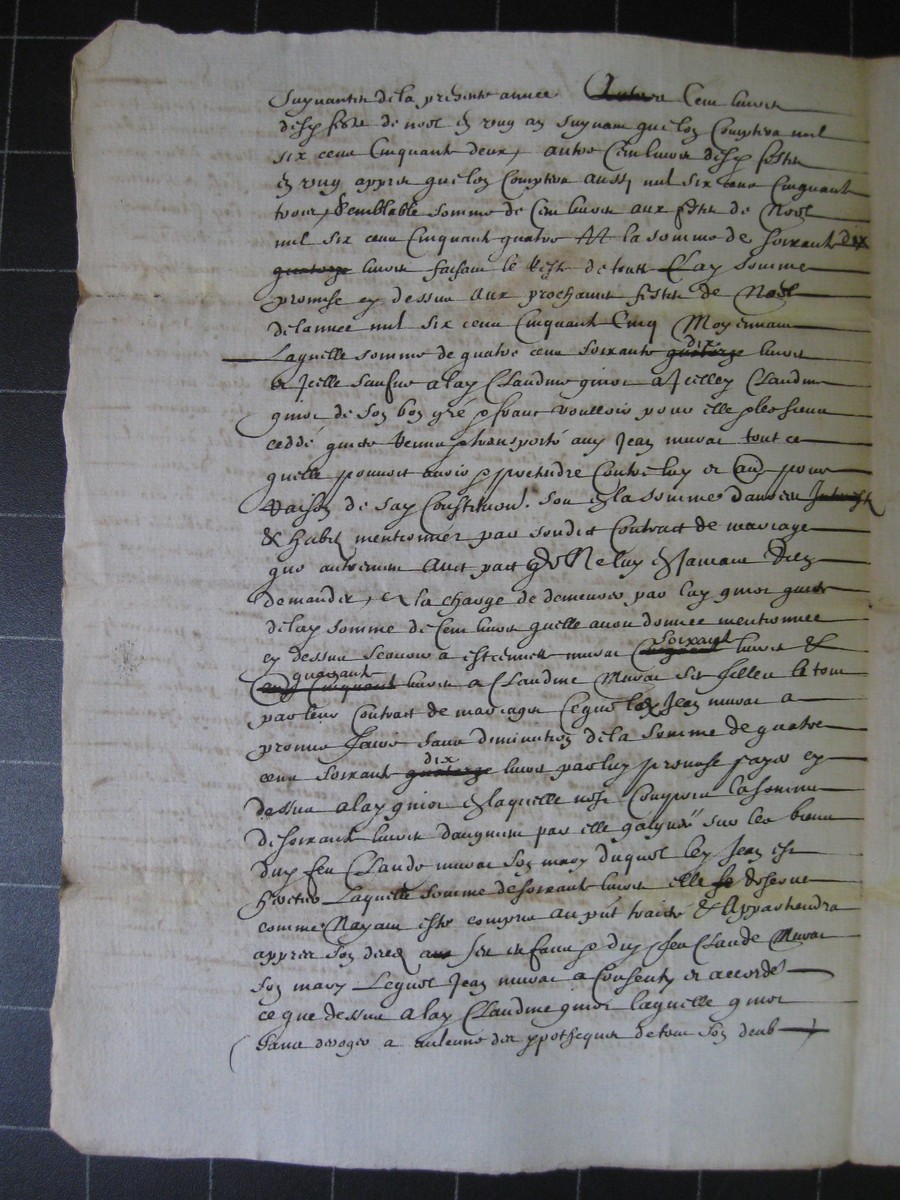 suyvantes de la presente annee Autre Cent livres
desd festes de noel en ung an suyvant que lon Comptera mil
six cens Cinquante deux, autre Cent livres desd festes
en ung appres que lon Comptera aussy mil six cens Cinquante
trois, semblable somme de Cent livres aux festes de Noel
mil six cens Cinquante quatre Et la somme de soixante dix
quatorze livres faisant le reste de toute lad somme
promise cy dessus aux prochaines festes de Noel
de lannee mil six cens Cinquante Cinq Moyennant
Laquelle somme de quatre cens soixante quatorze dix livres
et Icelle saufve a lad Claudine a Icelley Claudine
de son bon gré franc voulloir pour elle et les siens
ceddé quicte venu transporté aud Jean murat tout ce
quelle pouvoit avoir et pretendre Contre luy et pour
Raison de sad Constitution. Soit en la somme dargent
& habis mentionnes par sondict Contract de mariage
que autrement Avec pact de Ne luy en Jamais Rien
demander, en la charge de demeurer par lad quicte
de lad somme de Cent livres quelle avoit donnee mentionnee
cy dessus scavoir a estiennette murat Cinquante soixante livres &
Cinquante quarante livres a Claudine Murat ses filles le tout
par leurs Contract de mariages Ce que led Jean murat a
promis faire sans diminution de la somme de quatre
cens soixante quatorze dix livres par luy promise payer cy
dessus a lad en laquelle nest Comprise la somme
de soixante livres daugment par elle gaigné sur les biens
dud feu Claude murat son mary duquel led Jean est
heritier Laquelle somme de soixante livres elle se reserve
comme Nayant esté comprise au pnt traicté & Appartiendra
appres son deces a ses enfans et dud feu Claude Murat
son mary Lequel Jean murat a Consenty et accordé
ce que dessus a lad Claudine laquelle
sans deroger a aulcune des ypotheques de tout son deub